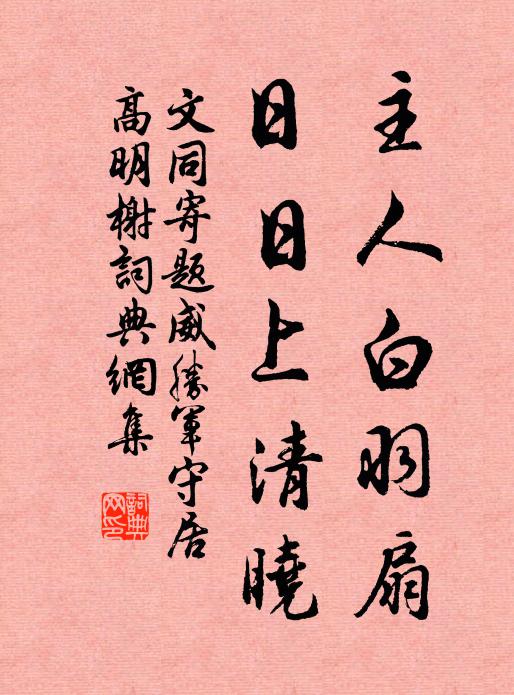 主人白羽扇
日日上清曉
文同寄題威勝軍守居
高明榭詞典網集
詞典
网印